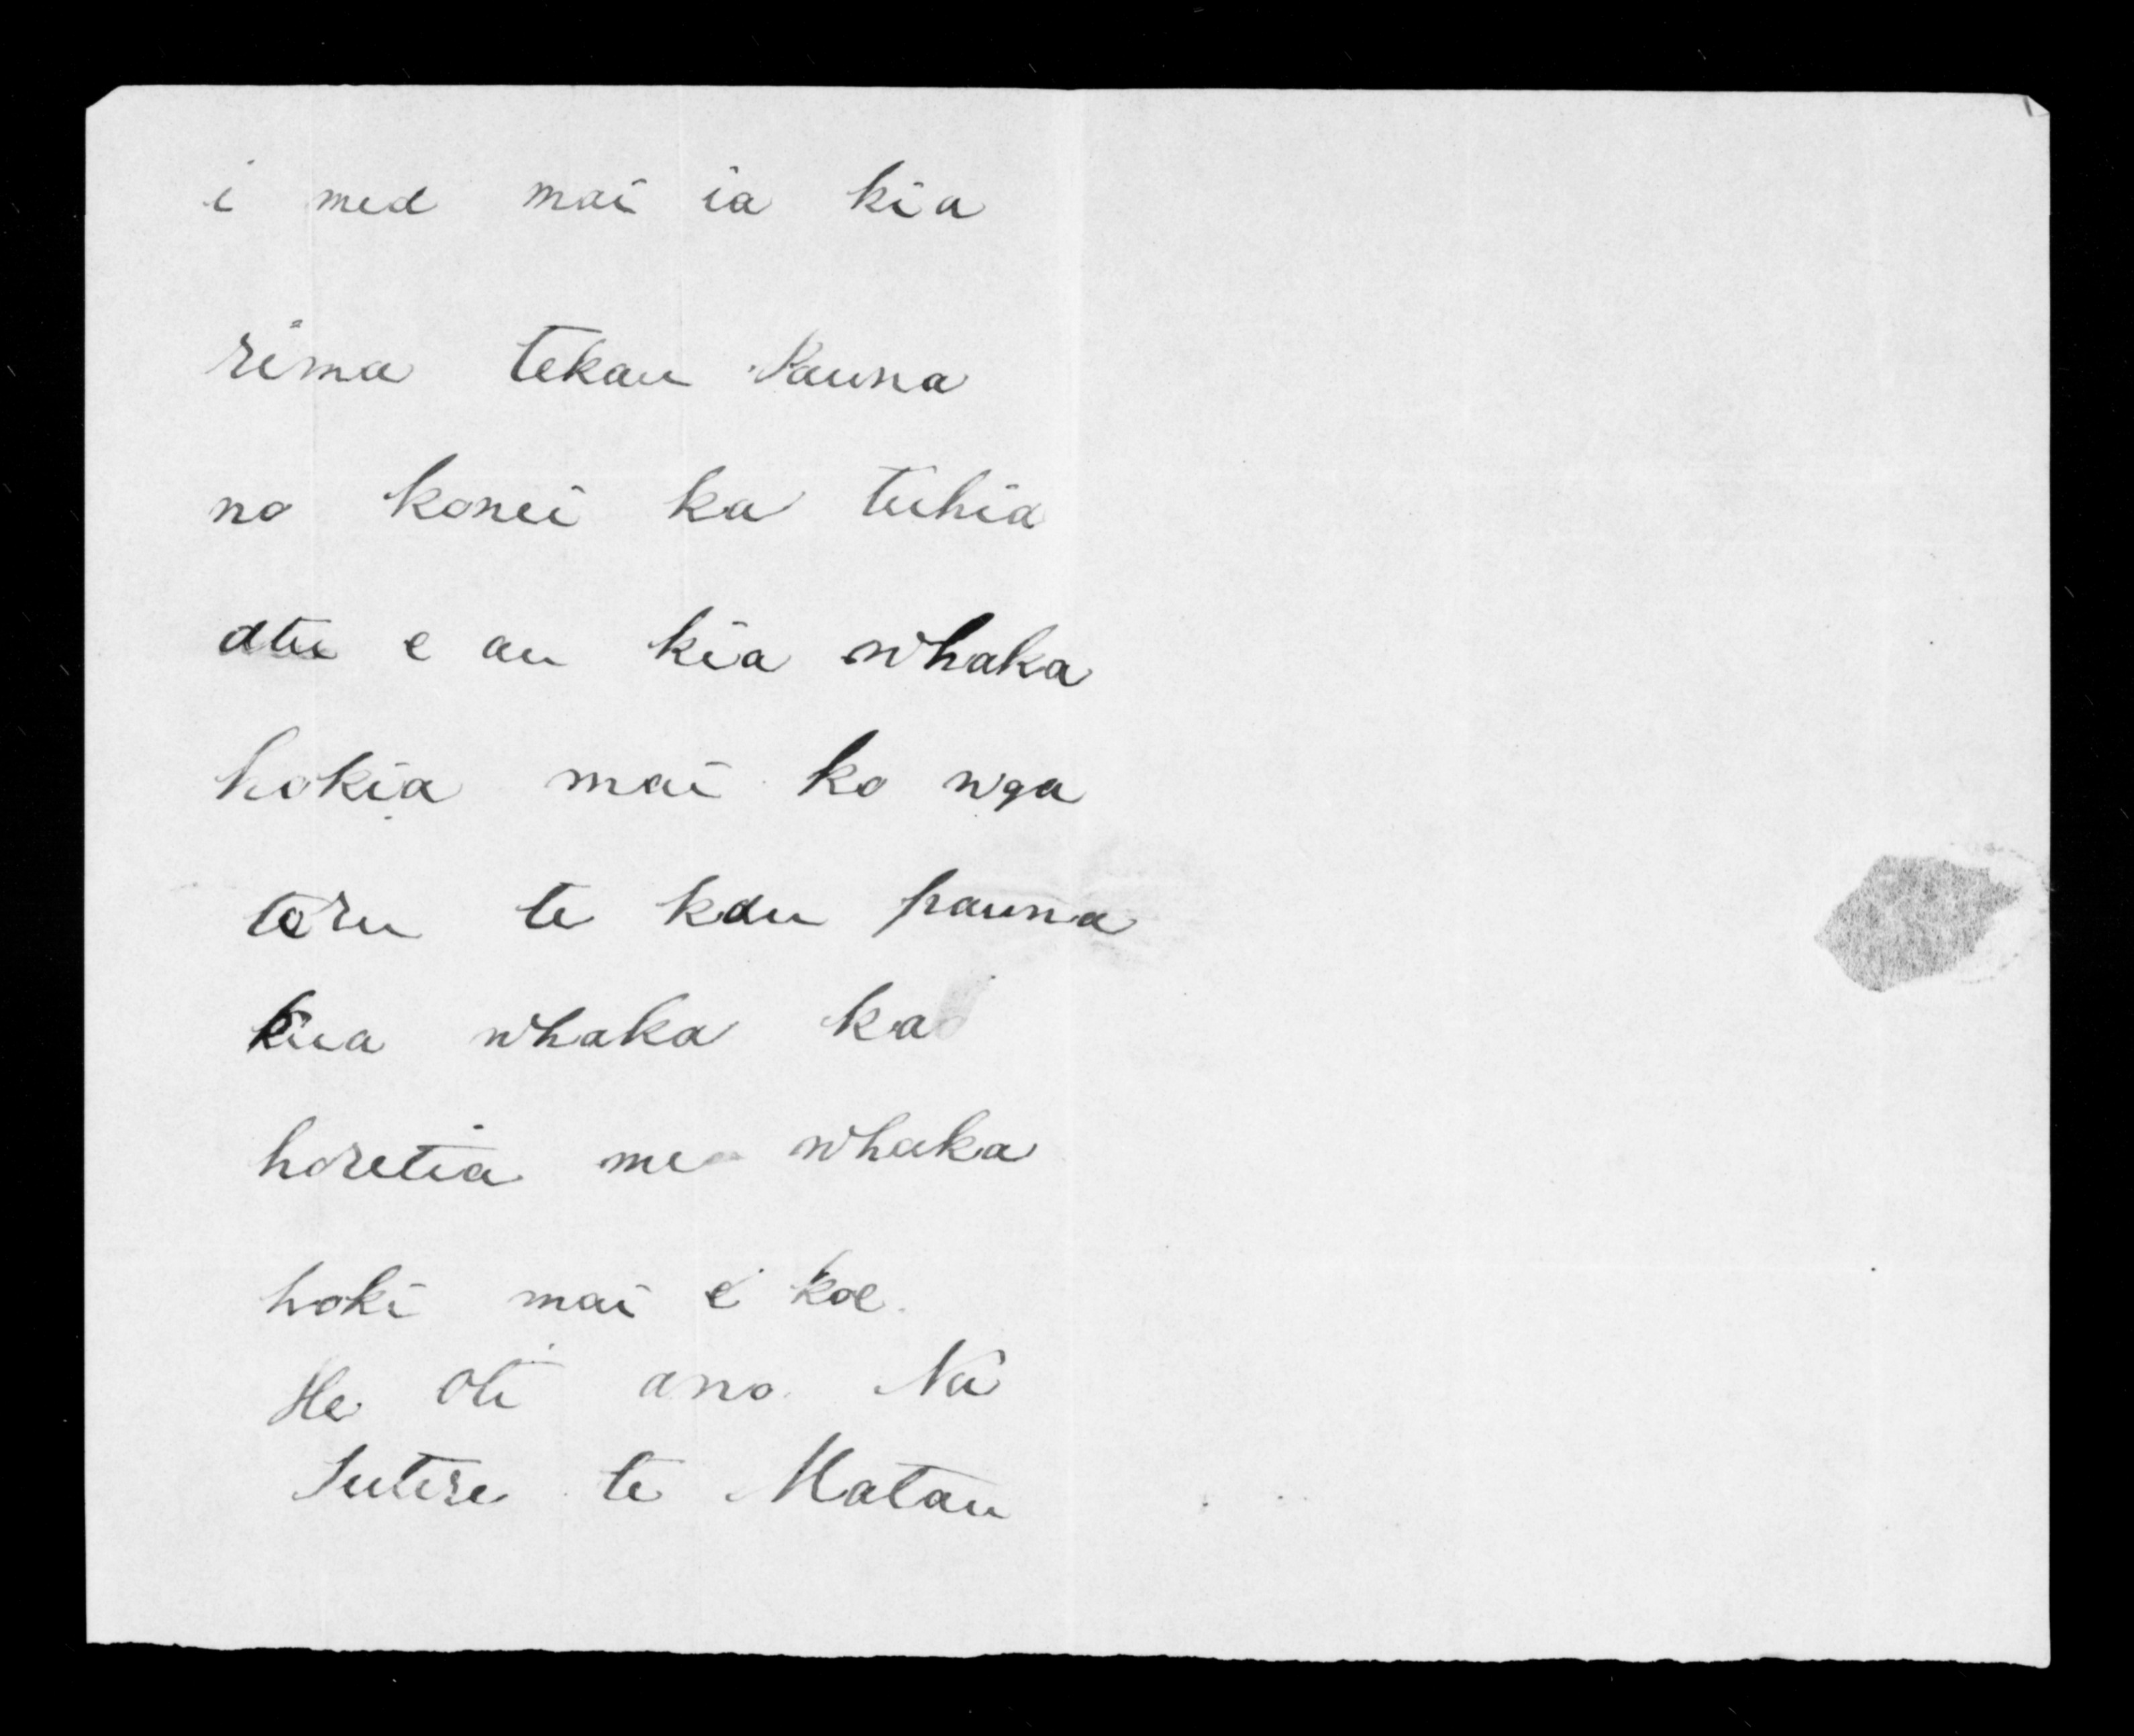 i mea mai ia kia
rima tekau Pauna
no konei ka tuhia
atu e au kia whaka
hokia mai ko nga
toru te kau pauna
kua whaka ka
horetia me whaka
hoki mai e koe.
He Oti ano Na
Tutere te Matau